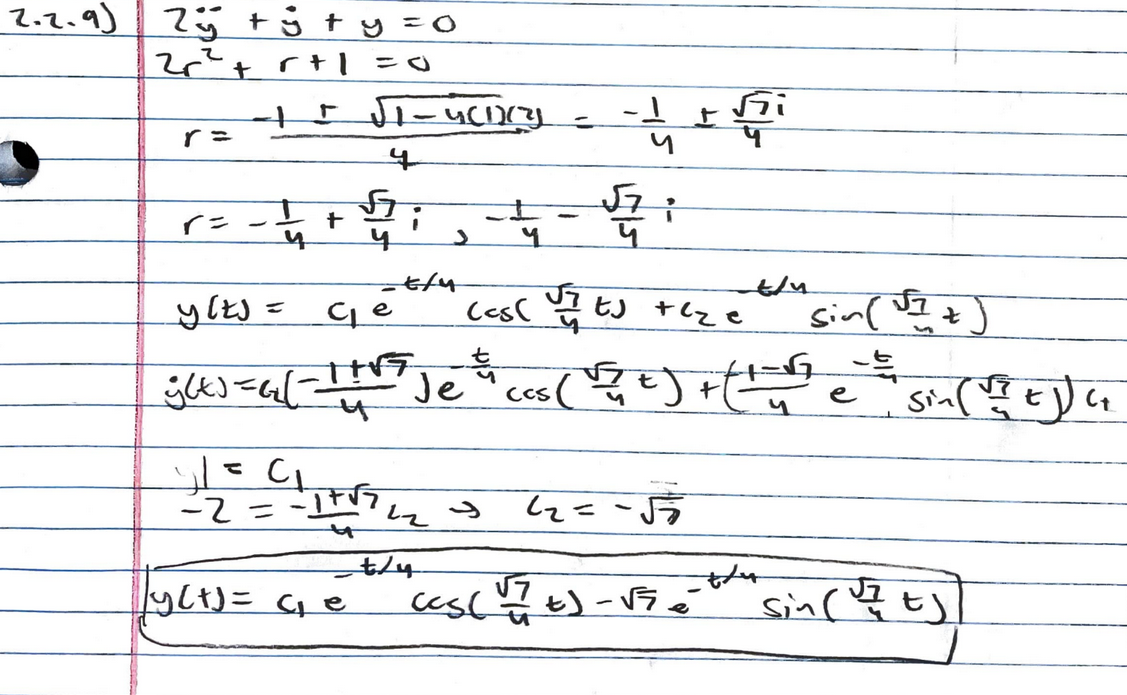 2.2.9) 2ÿ + ẏ + y = 0
2r² + r + 1 = 0
r = (-1 ± √(1-4(1)(2)))/4 = -1/4 ± √7i/4
r = -1/4 + √7/4 i , -1/4 - √7/4 i
y(t) = c₁ e^(-t/4) cos(√7/4 t) + c₂ e^(-t/4) sin(√7/4 t)
ẏ(t) = c₂(-1+√7/4)e^(-t/4) cos(√7/4 t) + (-1-√7/4 e^(-t/4) sin(√7/4 t)) c₁
1 = C₁
-2 = -1+√7/4 c₂ → c₂ = -√7
y(t) = c₁ e^(-t/4) cos(√7/4 t) - √7 e^(-t/4) sin(√7/4 t)